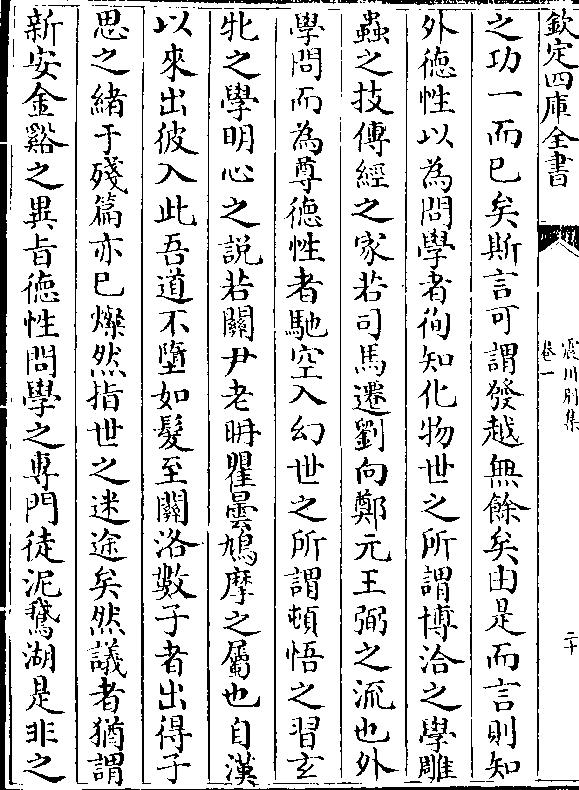 欽定四庫全書
震川別集
卷一
二十
之功一而已矣斯言可謂發越無餘矣由是而言則知
外德性以為問學者徇知化物世之所謂博洽之學雕
蟲之技傳經之家若司馬遷劉向鄭元王弼之流也外
學問而為尊德性者馳空入幻世之所謂頓悟之習玄
牝之學明心之說若關尹老耼瞿曇鳩摩之屬也自漢
以來出彼入此吾道不墮如髮至關洛數子者出得子
思之緒于殘篇亦已燦然指世之迷途矣然議者猶謂
新安金谿之異旨德性問學之專門徒泥鵞湖是非之